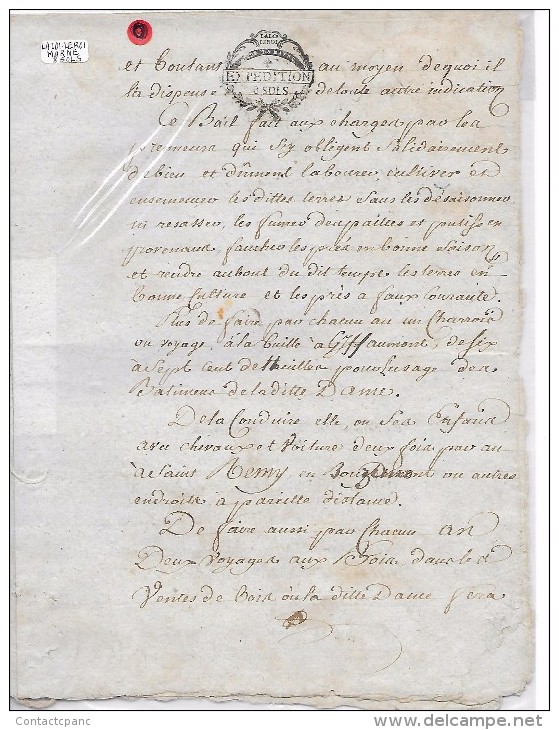 LA LOI-LE ROI
MARNE
8 SOLS
LA LOI
LE ROI
EXPEDITION
8 SOLS
et Contans au moyen de quoi il
dispense de toute autre indication
Ce Bail fait aux charges par les
preneurs qui s'y obligent Solidairement
de bien et dûment labourer, cultiver et
ensemencer les dittes terres sans les désaisonner
ni resasser, les fumer des pailles et
provenans, faucher les prés en bonne Saison
et rendre au bout du dit temps les terres en
bonne Culture et les prés a faux Courante.
Plus de faire par chacun an un Charrois
ou voyage, à la tuille à Giffaumont, de six
à Sept Cent de thuilles pour l'usage des
Batimens de la ditte Dame.
De la Conduire elle, ou Ses Enfans
avec chevaux et Voiture deux fois par an
à Saint Remy en ou autres
endroits a pareille distance.
De faire aussi par Chacun an
Deux Voyages aux Bois dans les
Ventes de Bois où la ditte Dame fera
Contactcpanc
www.delcampe.net